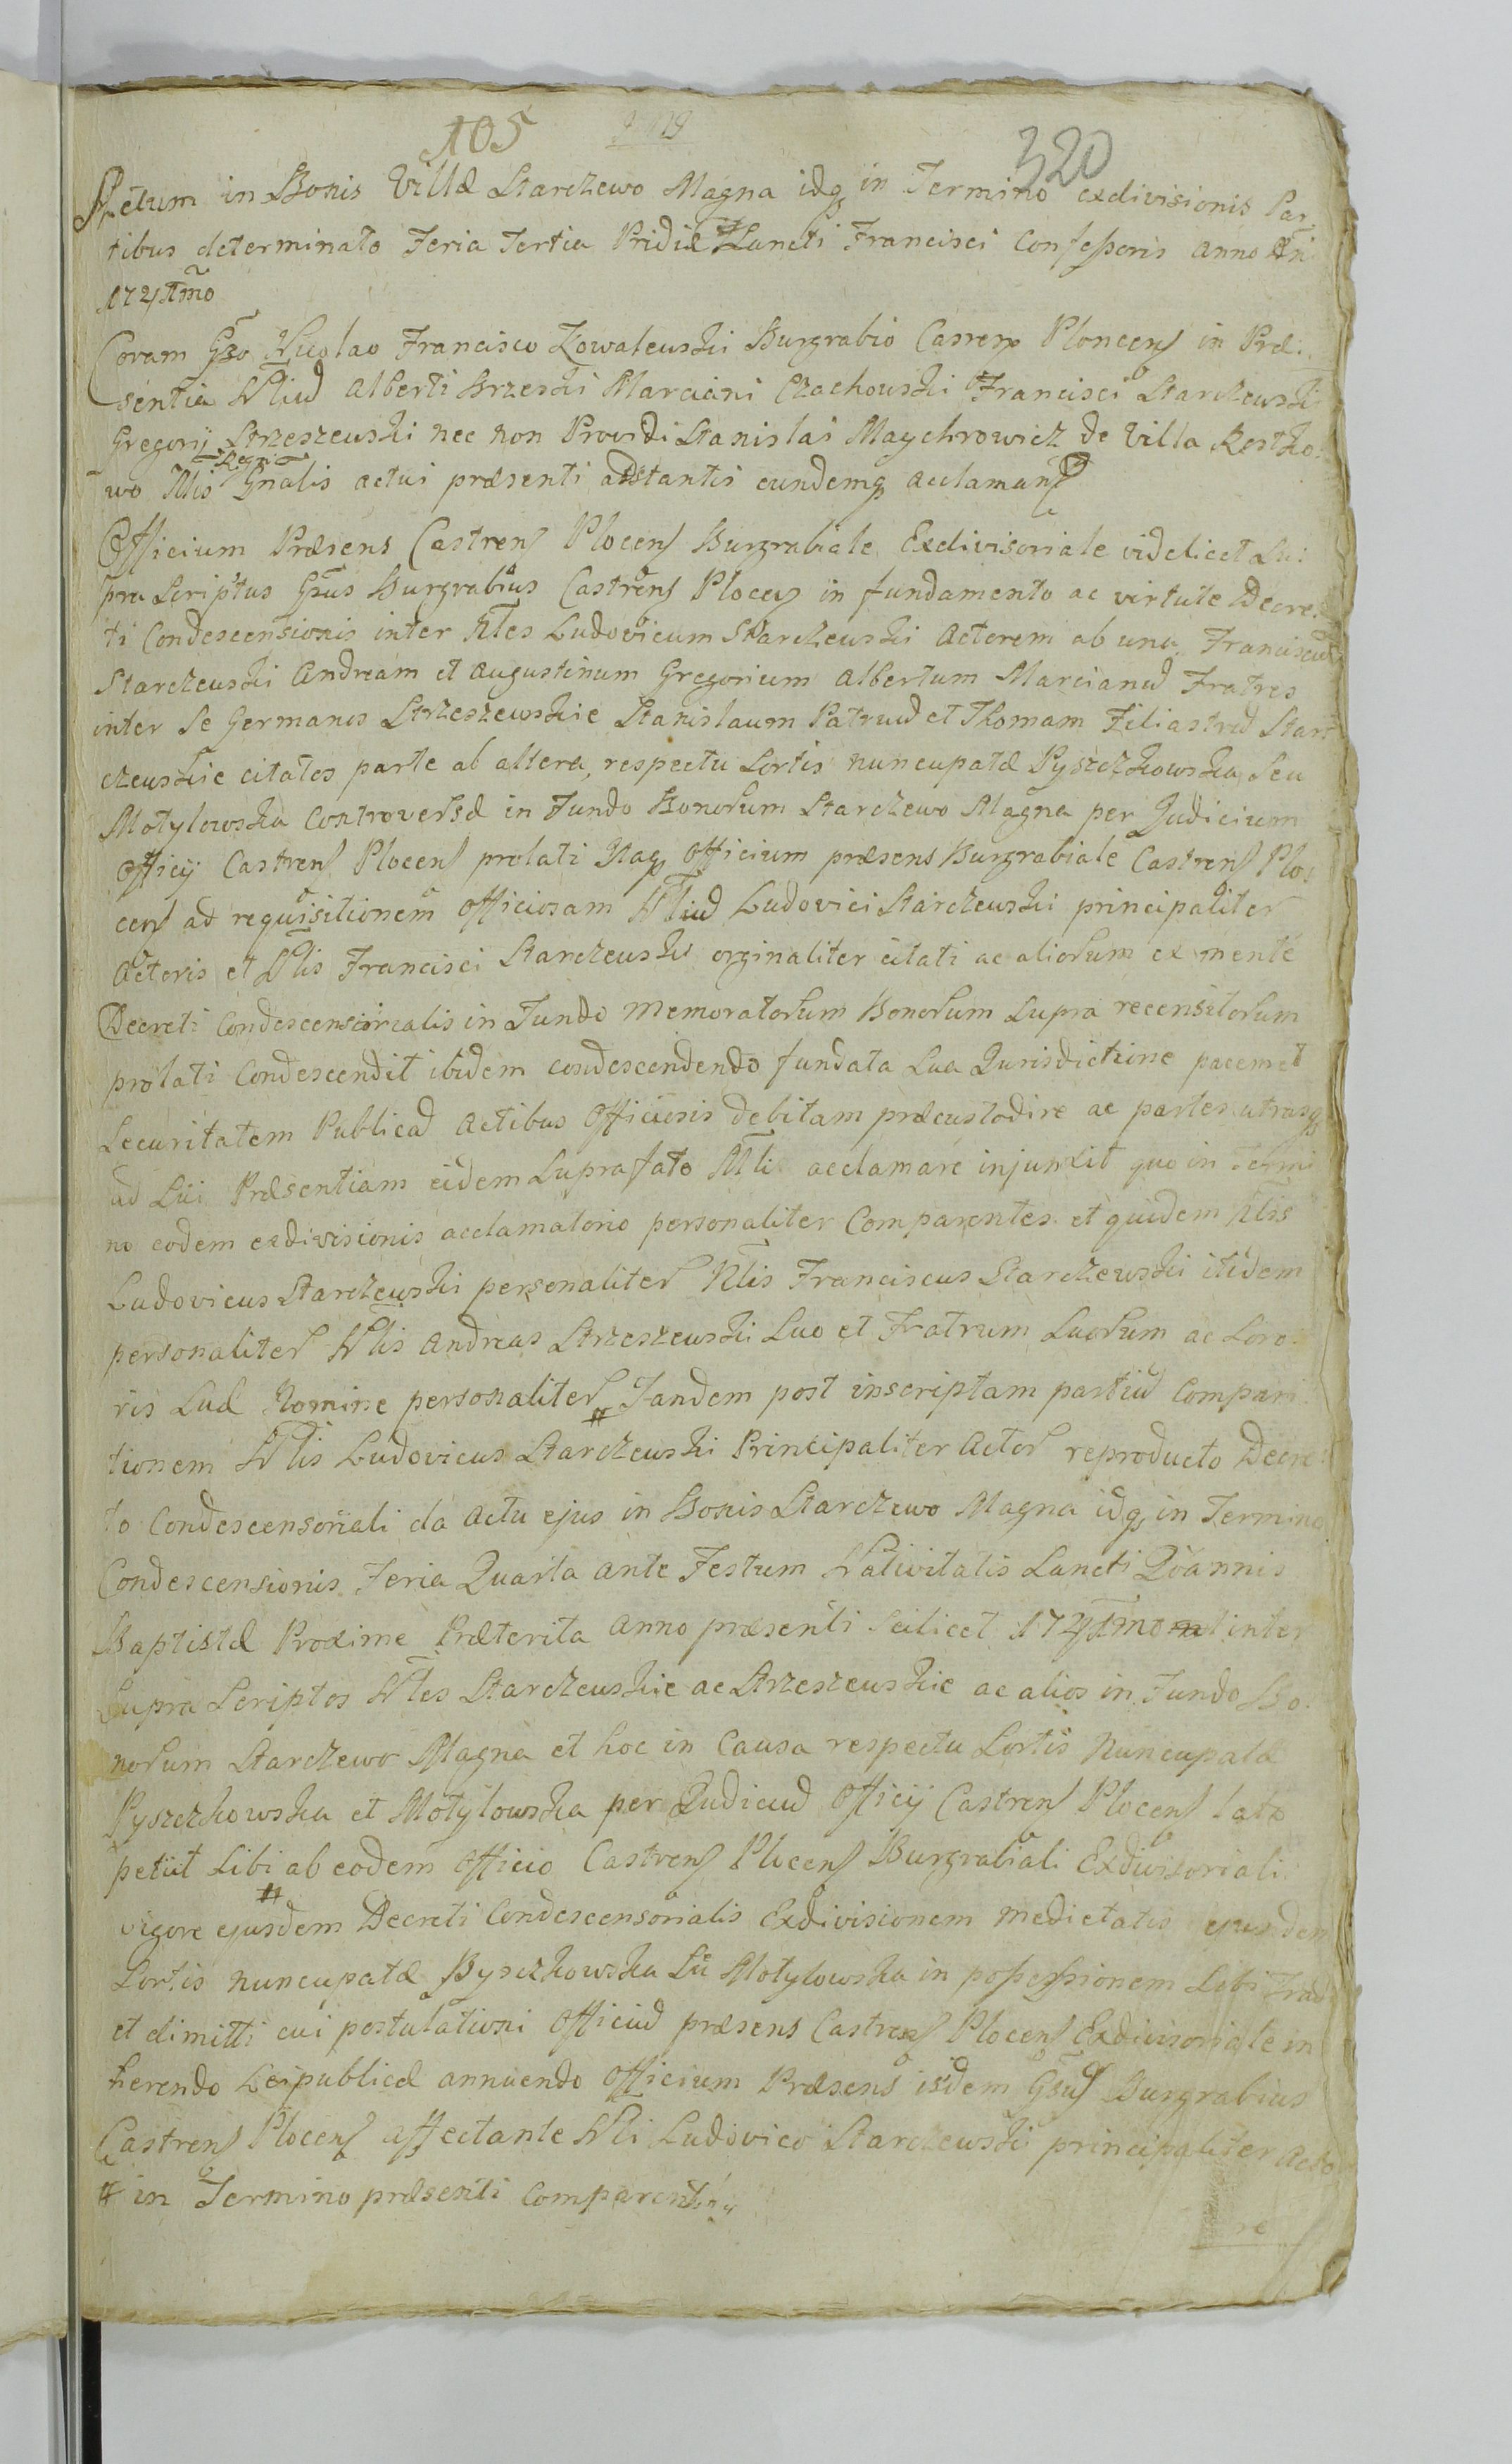 105
320
Actum in Bonis Villæ Starczewo Magna idq in Termino exdivisionis Par
tibus determinato Feria Tertia Pridie Sancti Francisci Confessoris Anno Dni
1721mo
Coram Gso Nicolao Francisco Kowalewski Burgrabio Castren Plocens in Præ
sentia Nliud Alberti Brzeski Marciani Czachowski Francisci Starczewski
Gregorij Strzeszewski nec non Providi Stanislai Maychrowicz de Villa Rostko
wo Mlis Regni Gnalis actui præsenti adstantis eundemq acclamans
Officium Præsens Castrens Plocens Burgrabiale Exdivisoriale videlicet Su
pra Scriptus Gsus Burgrabius Castrens Plocens in fundamento ac virtute Decre
ti Condescensionis inter Nles Ludovicum Starczewski Actorem ab una, Franciscum
Starczewski Andream et Augustinum Gregorium Albertum Marcianud Fratres
inter Se Germanos Strzeszewskie Stanislaum Patruud et Thomam Filiastrud Star
czewskie citatos parte ab altera, respectu Sortis nuncupatæ Pyszczkowska Seu
Motylowska Controversæ in Fundo Bonorum Starczewo Magna per Judicium
Officij Castrens Plocens prolati Itaq Officium præsens Burgrabiale Castrens Plo
cens ad requisitionem officiosam Nliud Ludovici Starczewski principaliter
Actoris et Nlis Francisci Starczewski orginaliter citati ac aliorum ex mente
Decreti Condescensorialis in Fundo memoratorum Bonorum Supra recensitorum
prolati Condescendit ibidem condescendendo fundata Sua Jurisdictione pacem et
Securitatem Publicad Actibus Officiosis debitam præcustodire ac partes utrasq
ad Sui Præsentiam eidem Suprafato Mli acclamare injunxit quo in Termi
no eodem exdivisionis acclamatorio personaliter Comparentes et quidem Nlis
Ludovicus Starczewski personaliter Nlis Franciscus Starczewski itidem
personaliter Nlis Andreas Strzeszewski Suo et Fratrum Suorum ac Soro
ris Suæ Nomine personaliter # Tandem post inscriptam partiud Compari
tionem Nlis Ludovicus Starczewski Principaliter Actor reproducto Decre
to Condescensoriali da Actu ejus in Bonis Starczewo Magna idq in Termino
Condescensionis Feria Quarta ante Festum Nativitatis Sancti Joannis
Baptistæ Proxime Præterita Anno præsenti Scilicet 1721mo inter
Supra Scriptos Nles Starczewskie ac Strzeszewskie ac alios in Fundo Bo
norum Starczewo Magna et hoc in Causa respectu Sortis Nuncupatæ
Pyszczkowska et Motylowska per Judiciud Officij Castrens Plocens lato
petiit Sibi ab eodem Officio Castrens Plocens Burgrabiali Exdivisoriali
# vigore ejusdem Decreti Condescensorialis Exdivisionem medietatis ejusdem
Sortis nuncupatæ Pyszczkowska Su Motylowska in possessionem Sibi Tradi
et dimitti cui postulationi Officiud præsens Castrens Plocens Exdivisoriale in
herendo Leipublicæ annuendo Officium Præsens isdem Gsus Burgrabius
Castrens Plocens affectante Nli Ludovico Starczewski principaliter Acto
# in Termino præsenti Comparentibus
re